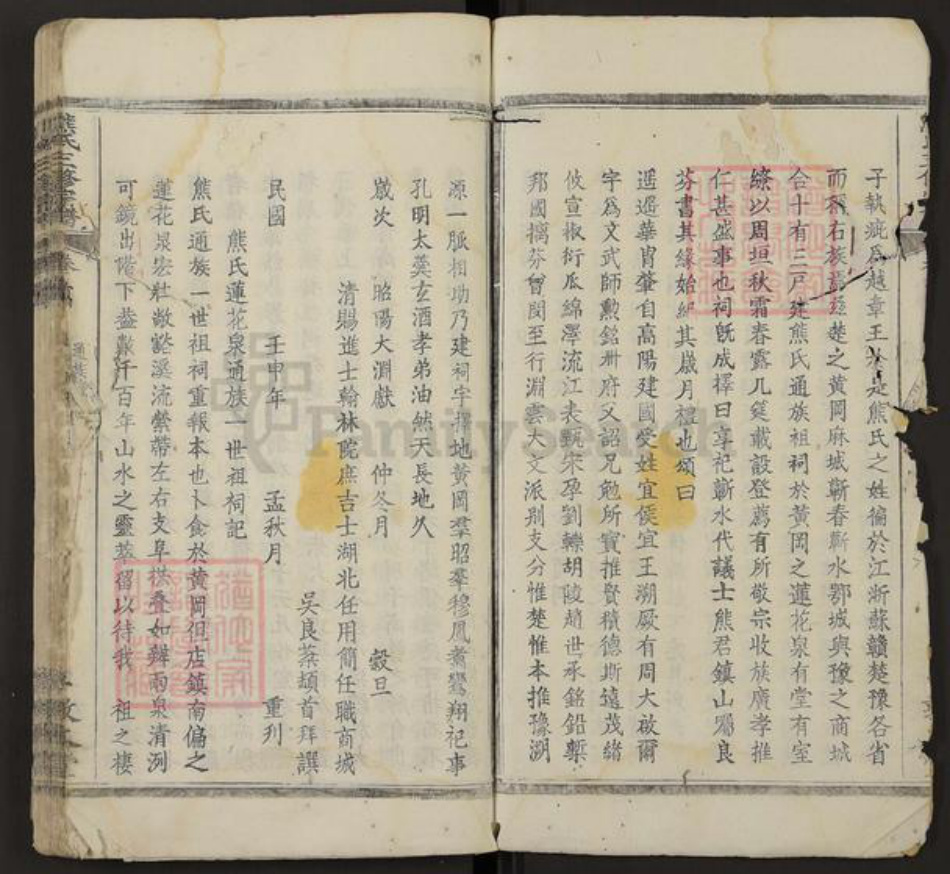 子執疵爲越章王於是熊氏之姓徧於江浙蘇贛楚豫各省
而稱右族焉茲楚之黃岡麻城蘄春蘄水鄂城與豫之商城
合十有三戶建熊氏通族祖祠於黃岡之蓮花泉有堂有室
繚以周垣秋霜春露几筵載設登薦有所敬宗收族廣孝推
仁甚盛事也祠旣成擇日享祀蘄水代議士熊君鎮山屬良
芬書其緣始紀其歲月禮也頌曰
遥遥華胄肇自高陽建國受姓宜侯宜王溯厥有周大啟爾
宇爲文武師勲銘卌府又詔兄勉所寳推賢積德斯遠茂緒
攸宣椒衍瓜綿澤流江表甄宋孕劉轢胡陵趙世承銘鉛槧
邦國摛芬曾閔至行淵雲大文派别支分惟楚惟本推豫溯
源一脈相助乃建祠宇擇地黃岡羣昭羣穆鳳翥鸞翔祀事
孔明太羹玄酒孝弟油然天長地久
歲次 昭陽大淵獻 仲冬月 穀旦
清賜進士翰林院庶吉士湖北任用簡任職商城
吳良棻頓首拜譔
民國 壬申年 孟秋月 重刋
熊氏蓮花泉通族一世祖祠記
熊氏通族一世祖祠重報本也卜食於黃岡徂店鎮南偏之
蓮花泉宏壯敞豁溪流縈帶左右支阜拱叠如辮兩泉清洌
可鏡出階下葢數千百年山水之靈萃留以待我 祖之棲
熊氏三修宗譜